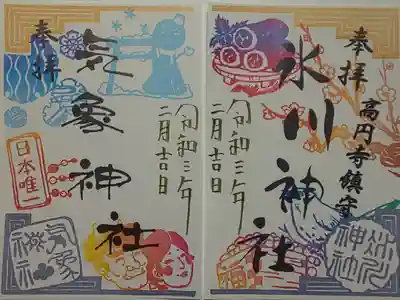 奉拝
高円寺鎮守
氷川神社
令和三年
二月吉日
福
氷川神社
奉拝
気象神社
日本唯一
令和三年
二月吉日
気象神社